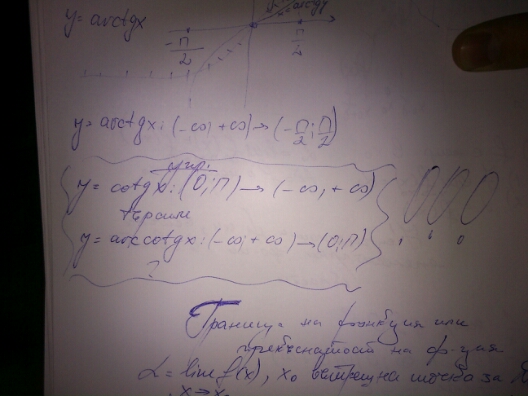 y = arctgx
y = arctgx
-π/2
π/2
y = arctgx : (-∞, +∞) → (-π/2; π/2)
упр.
y = cotgx : (0; π) → (-∞, +∞)
търсим
y = arccotgx : (-∞, +∞) → (0, π)
?
Граница на функция или
прекъснатост на ф-ция
L = lim f(x), x₀ вътрешна точка за
x→x₀